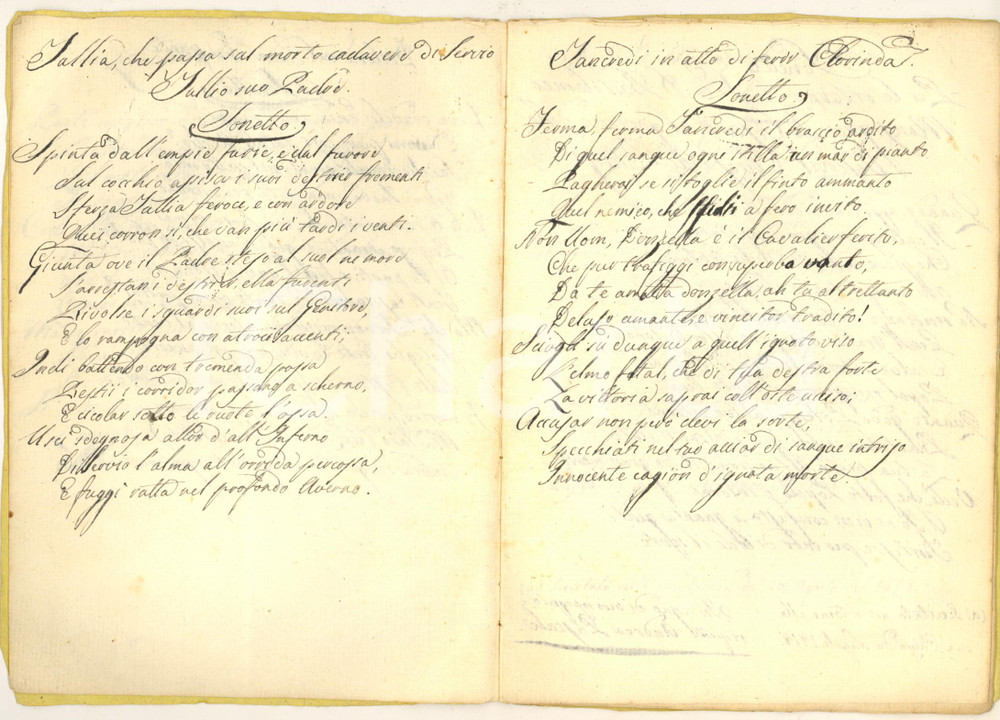 Tullia, che passa sul morto cadavere di Servio
Tullio suo Padre.
Sonetto
Spinta dall'empie furie, e dal furore
Sul cocchio assisa i suoi destrier frementi
Sferza Tullia feroce, e con ardore
Quei corron sì, che van più tardi i venti.
Giunta ove il Padre steso al suol ne more
S'arrestan i destrier, ella furenti
Rivolse i sguardi suoi sul Genitore,
E lo rampogna con atroci accenti;
Indi battendo con tremenda possa
Destii i corridor passano a scherno,
E cicolar sotto le ruote l'ossa.
Uscì sdegnosa allor d'all'Inferno
Di Servio l'alma all'orrida percossa,
E fuggì ratta nel profondo Averno.
Tancredi in atto di ferir Clorinda.
Sonetto
Ferma, ferma Tancredi il braccio ardito
Di quel sangue ogni stilla un mar di pianto
Pagherai se si toglie il finto ammanto
Quel nemico, che sfidi a fero invito.
Non Uom, Donzella è il Cavalier ferito,
Che pur trafiggi con superbo vanto,
Da te amata donzella, ah tu altrettanto
Deluso amante, e vincitor tradito!
Sciogli sù dunque a quell'ignoto viso
L'elmo fatal, che di tua destra forte
La vittoria saprai coll'oste ucciso;
Accusar non però devi la sorte,
Specchiati nel tuo acciar di sangue intriso
Innocente cagion d'ignota morte.